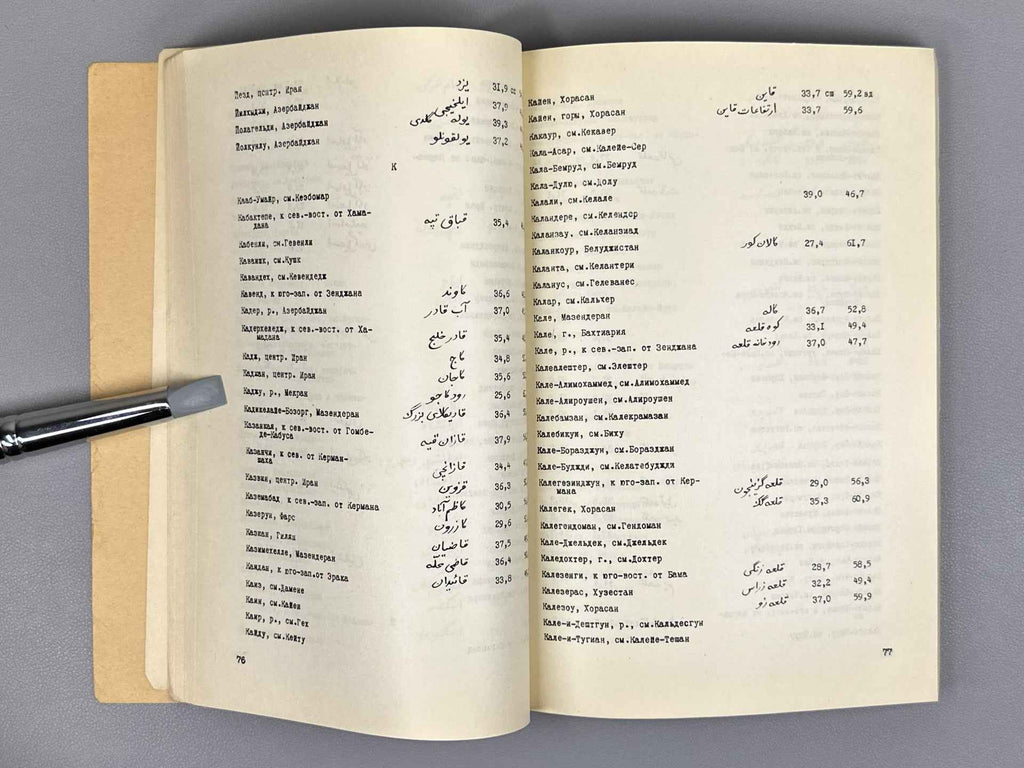 Йезд, центр. Иран یزد 31,9 сш
Йилхыджи, Азербайджан ایلخیجی 37,9
Йолагельди, Азербайджан یوله گلدی 39,3
Йолкунлу, Азербайджан یولقونلو 37,2
К
Кааб-Умайр, см.Кезбомар
Кабактепе, к сев.-вост. от Хама-
дана قباق تپه 35,4
Кабенли, см.Гевенли
Каваишк, см.Кушк
Кавандех, см.Кевендедж
Кавенд, к юго-зап. от Зенджана کاوند 36,6
Кадер, р., Азербайджан آب قادر 37,0
Кадеркеледж, к сев.-вост. от Ха-
мадана قادر خلیج 35,4
Кадж, центр. Иран کاج 34,8
Каджан, центр. Иран کاجان 35,6
Каджу, р., Мекран رود کاجو 25,6
Кадикелайе-Бозорг, Мазендеран قادیکلای بزرگ 36,4
Казанкая, к сев.-вост. от Гомбе-
де-Кабуса قازان قیه 37,9
Казанчи, к сев. от Керман-
шаха قازانچی 34,4
Казвин, центр. Иран قزوین 36,3
Каземабад, к сев.-зап. от Кермана کاظم آباد 30,5
Казерун, Фарс کازرون 29,6
Казиан, Гилян قاضیان 37,5
Казимехелле, Мазендеран قاضی محله 36,4
Каидан, к юго-зап.от Эрака قائیدان 33,8
Каиз, см.Дамене
Каин, см.Кайен
Каир, р., см.Гех
Кайду, см.Кейту
76
Кайен, Хорасан قاین 33,7 сш 59,2 вд
Кайен, горы, Хорасан ارتفاعات قاین 33,7 59,6
Какаур, см.Кекавер
Кала-Асар, см.Калейе-Сер
Кала-Бемруд, см.Бемруд
Кала-Дулю, см.Долу
Калали, см.Келале 39,0 46,7
Каландере, см.Келендор
Каланзау, см.Келанзиад
Каланкоур, Белуджистан کالان کور 27,4 61,7
Каланта, см.Келантери
Каланус, см.Гелеванес
Калар, см.Кальхер
Кале, Мазендеран کاله 36,7 52,8
Кале, г., Бахтиария کوه قلعه 33,1 49,4
Кале, р., к сев.-зап. от Зенджана رودخانه قلعه 37,0 47,7
Калеалештер, см.Элештер
Кале-Алимохаммед, см.Алимохаммед
Кале-Алироушен, см.Алироушен
Калебамзан, см.Калекрамазан
Калебикуи, см.Биху
Кале-Боразджун, см.Боразджан
Кале-Буджди, см.Келатебуджди
Калегезинджун, к юго-зап. от Кер-
мана قلعه گزینجون 29,0 56,3
Калегек, Хорасан قلعه گک 35,3 60,9
Калегендоман, см.Гендоман
Кале-Джельдек, см.Джельдек
Каледохтер, г., см.Дохтер
Калезенги, к юго-вост. от Бама قلعه زنگی 28,7 58,5
Калезерас, Хузестан قلعه زراس 32,2 49,4
Калезоу, Хорасан قلعه زو 37,0 59,9
Кале-и-Дештгун, р., см.Кальдесгун
Кале-и-Тугиан, см.Калейе-Тешан
77